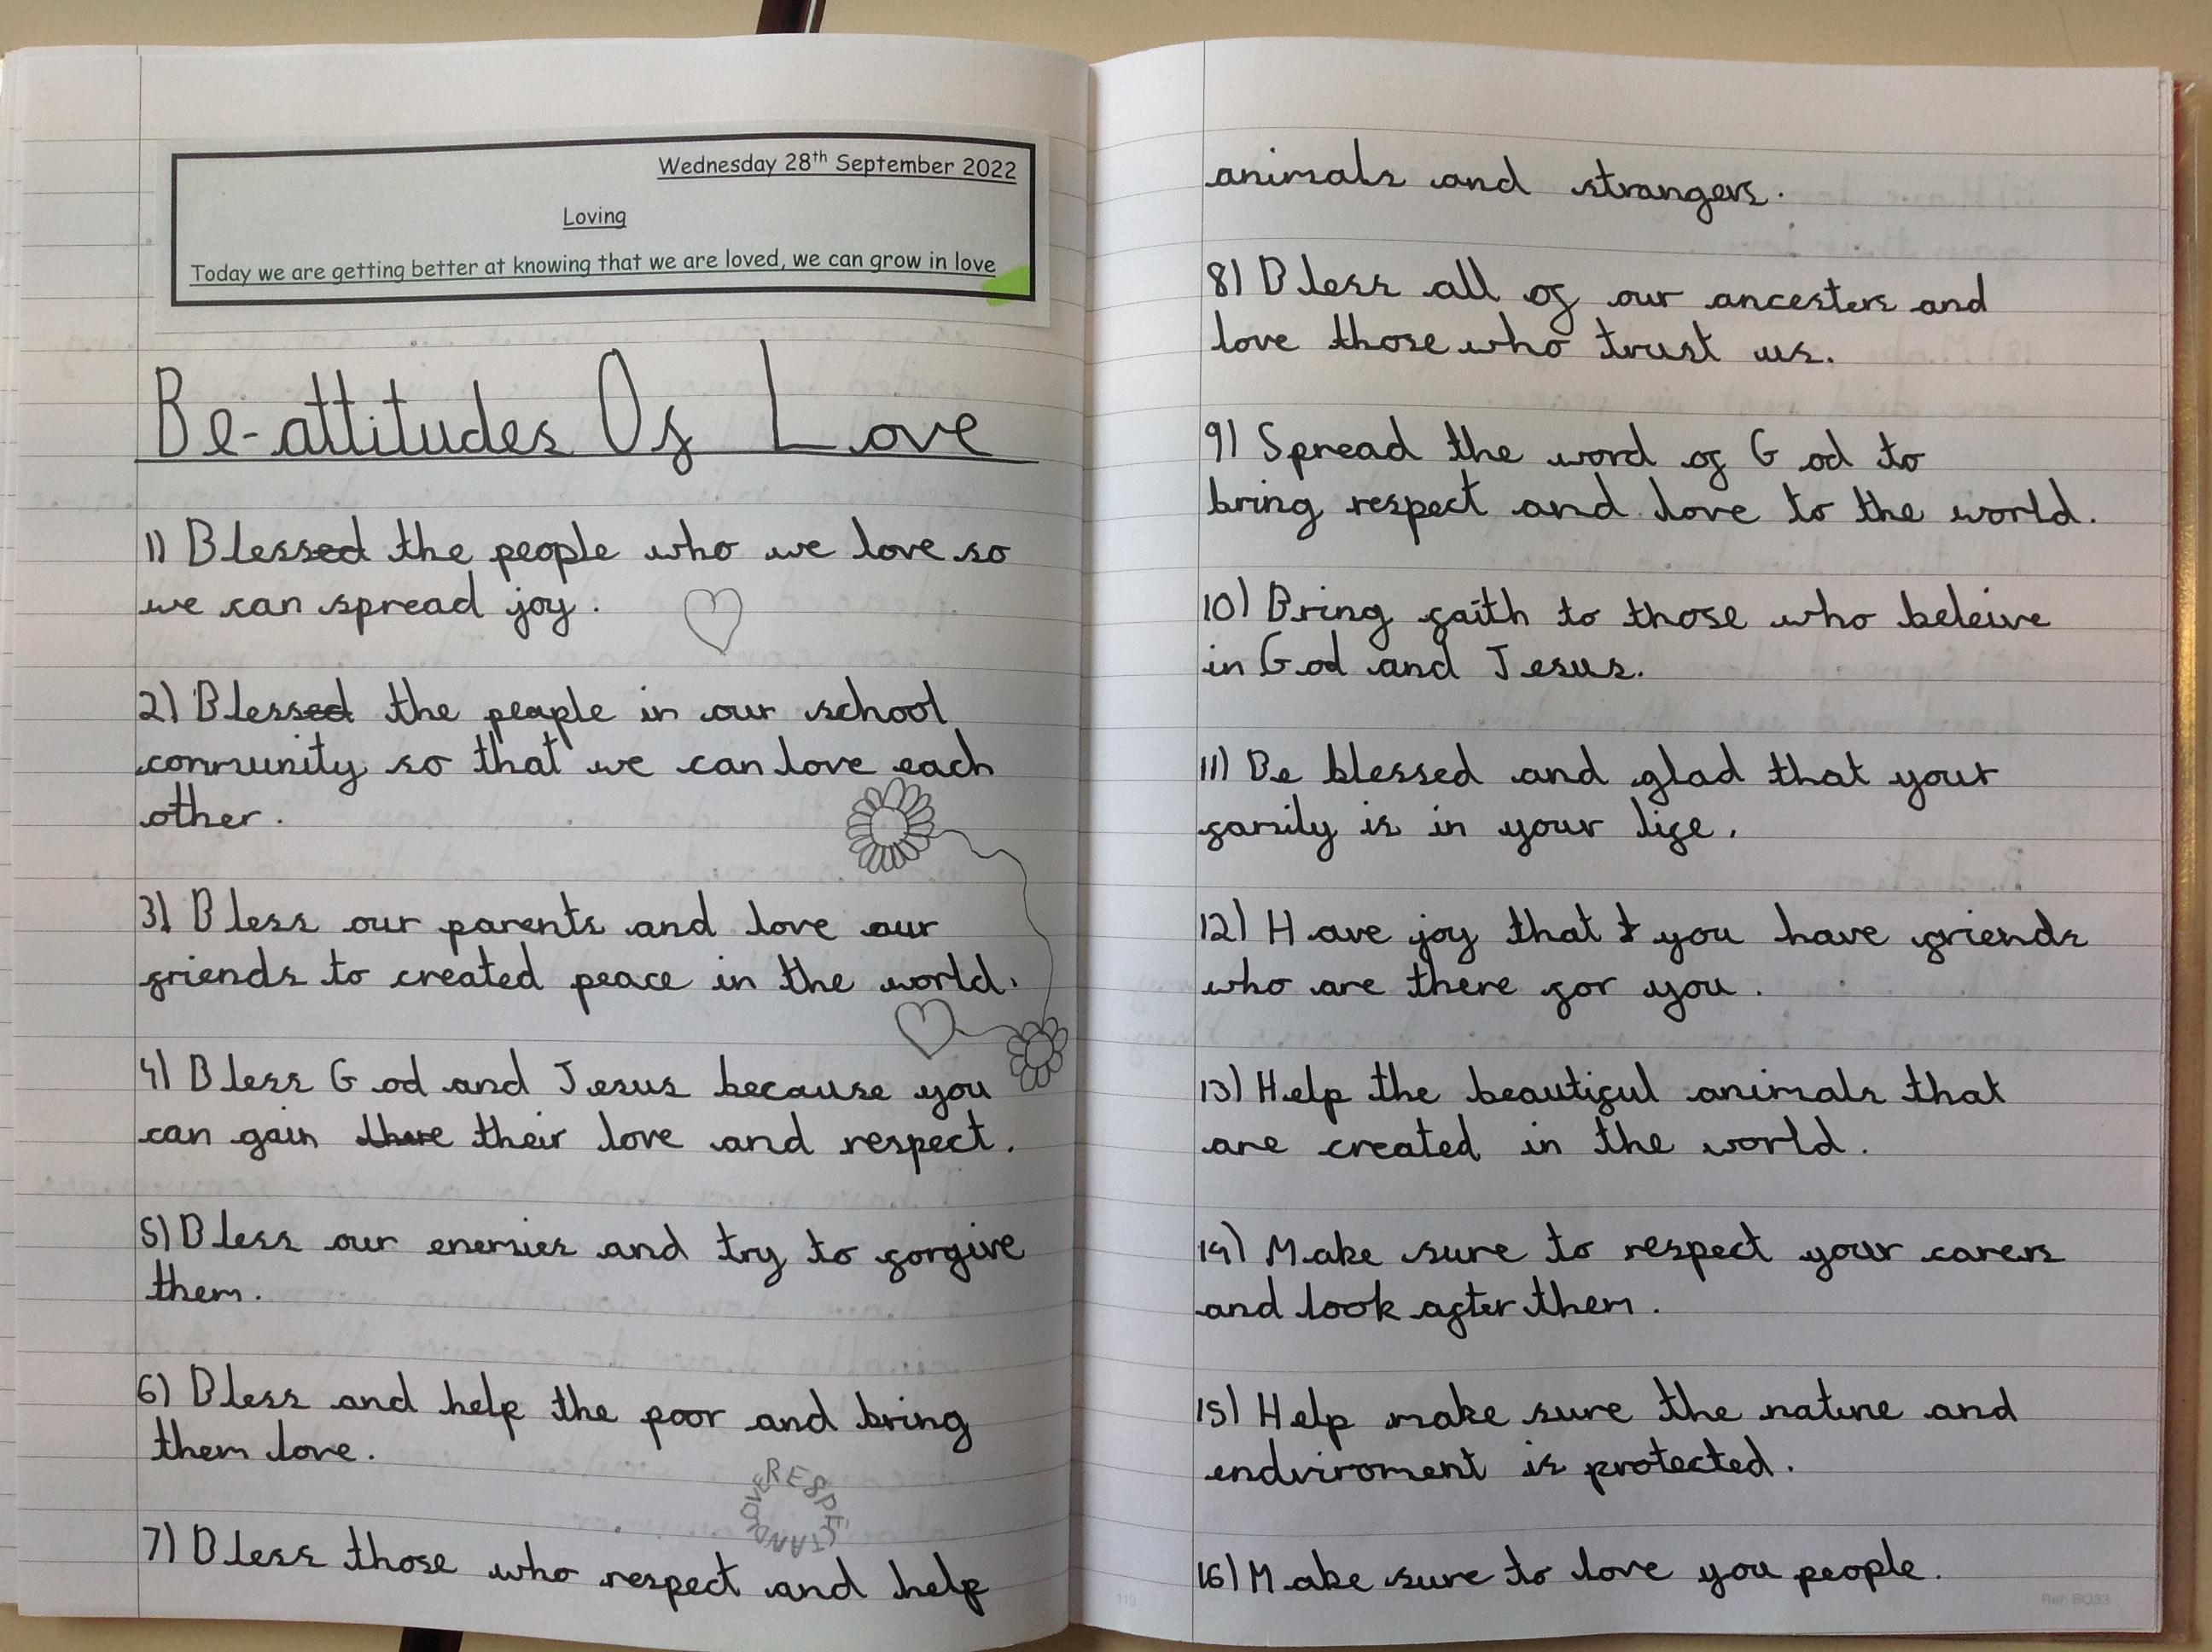 Wednesday 28th September 2022
Loving
Today we are getting better at knowing that we are loved, we can grow in love
Be-attitudes Of Love
1) Blessed the people who we love so
we can spread joy.
2) Blessed the people in our school
community so that we can love each
other.
3) Bless our parents and love our
friends to created peace in the world.
4) Bless God and Jesus because you
can gain there their love and respect.
5) Bless our enemies and try to forgive
them.
6) Bless and help the poor and bring
them love.
RESPECTANDLOVE
7) Bless those who respect and help
animals and strangers.
8) Bless all of our ancesters and
love those who trust us.
9) Spread the word of God to
bring respect and love to the world.
10) Bring faith to those who beleive
in God and Jesus.
11) Be blessed and glad that your
family is in your life.
12) Have joy that t you have friends
who are there for you.
13) Help the beautiful animals that
are created in the world.
14) Make sure to respect your carers
and look after them.
15) Help make sure the nature and
endviroment is protected.
16) Make sure to love you people.
119
Ref: BO33